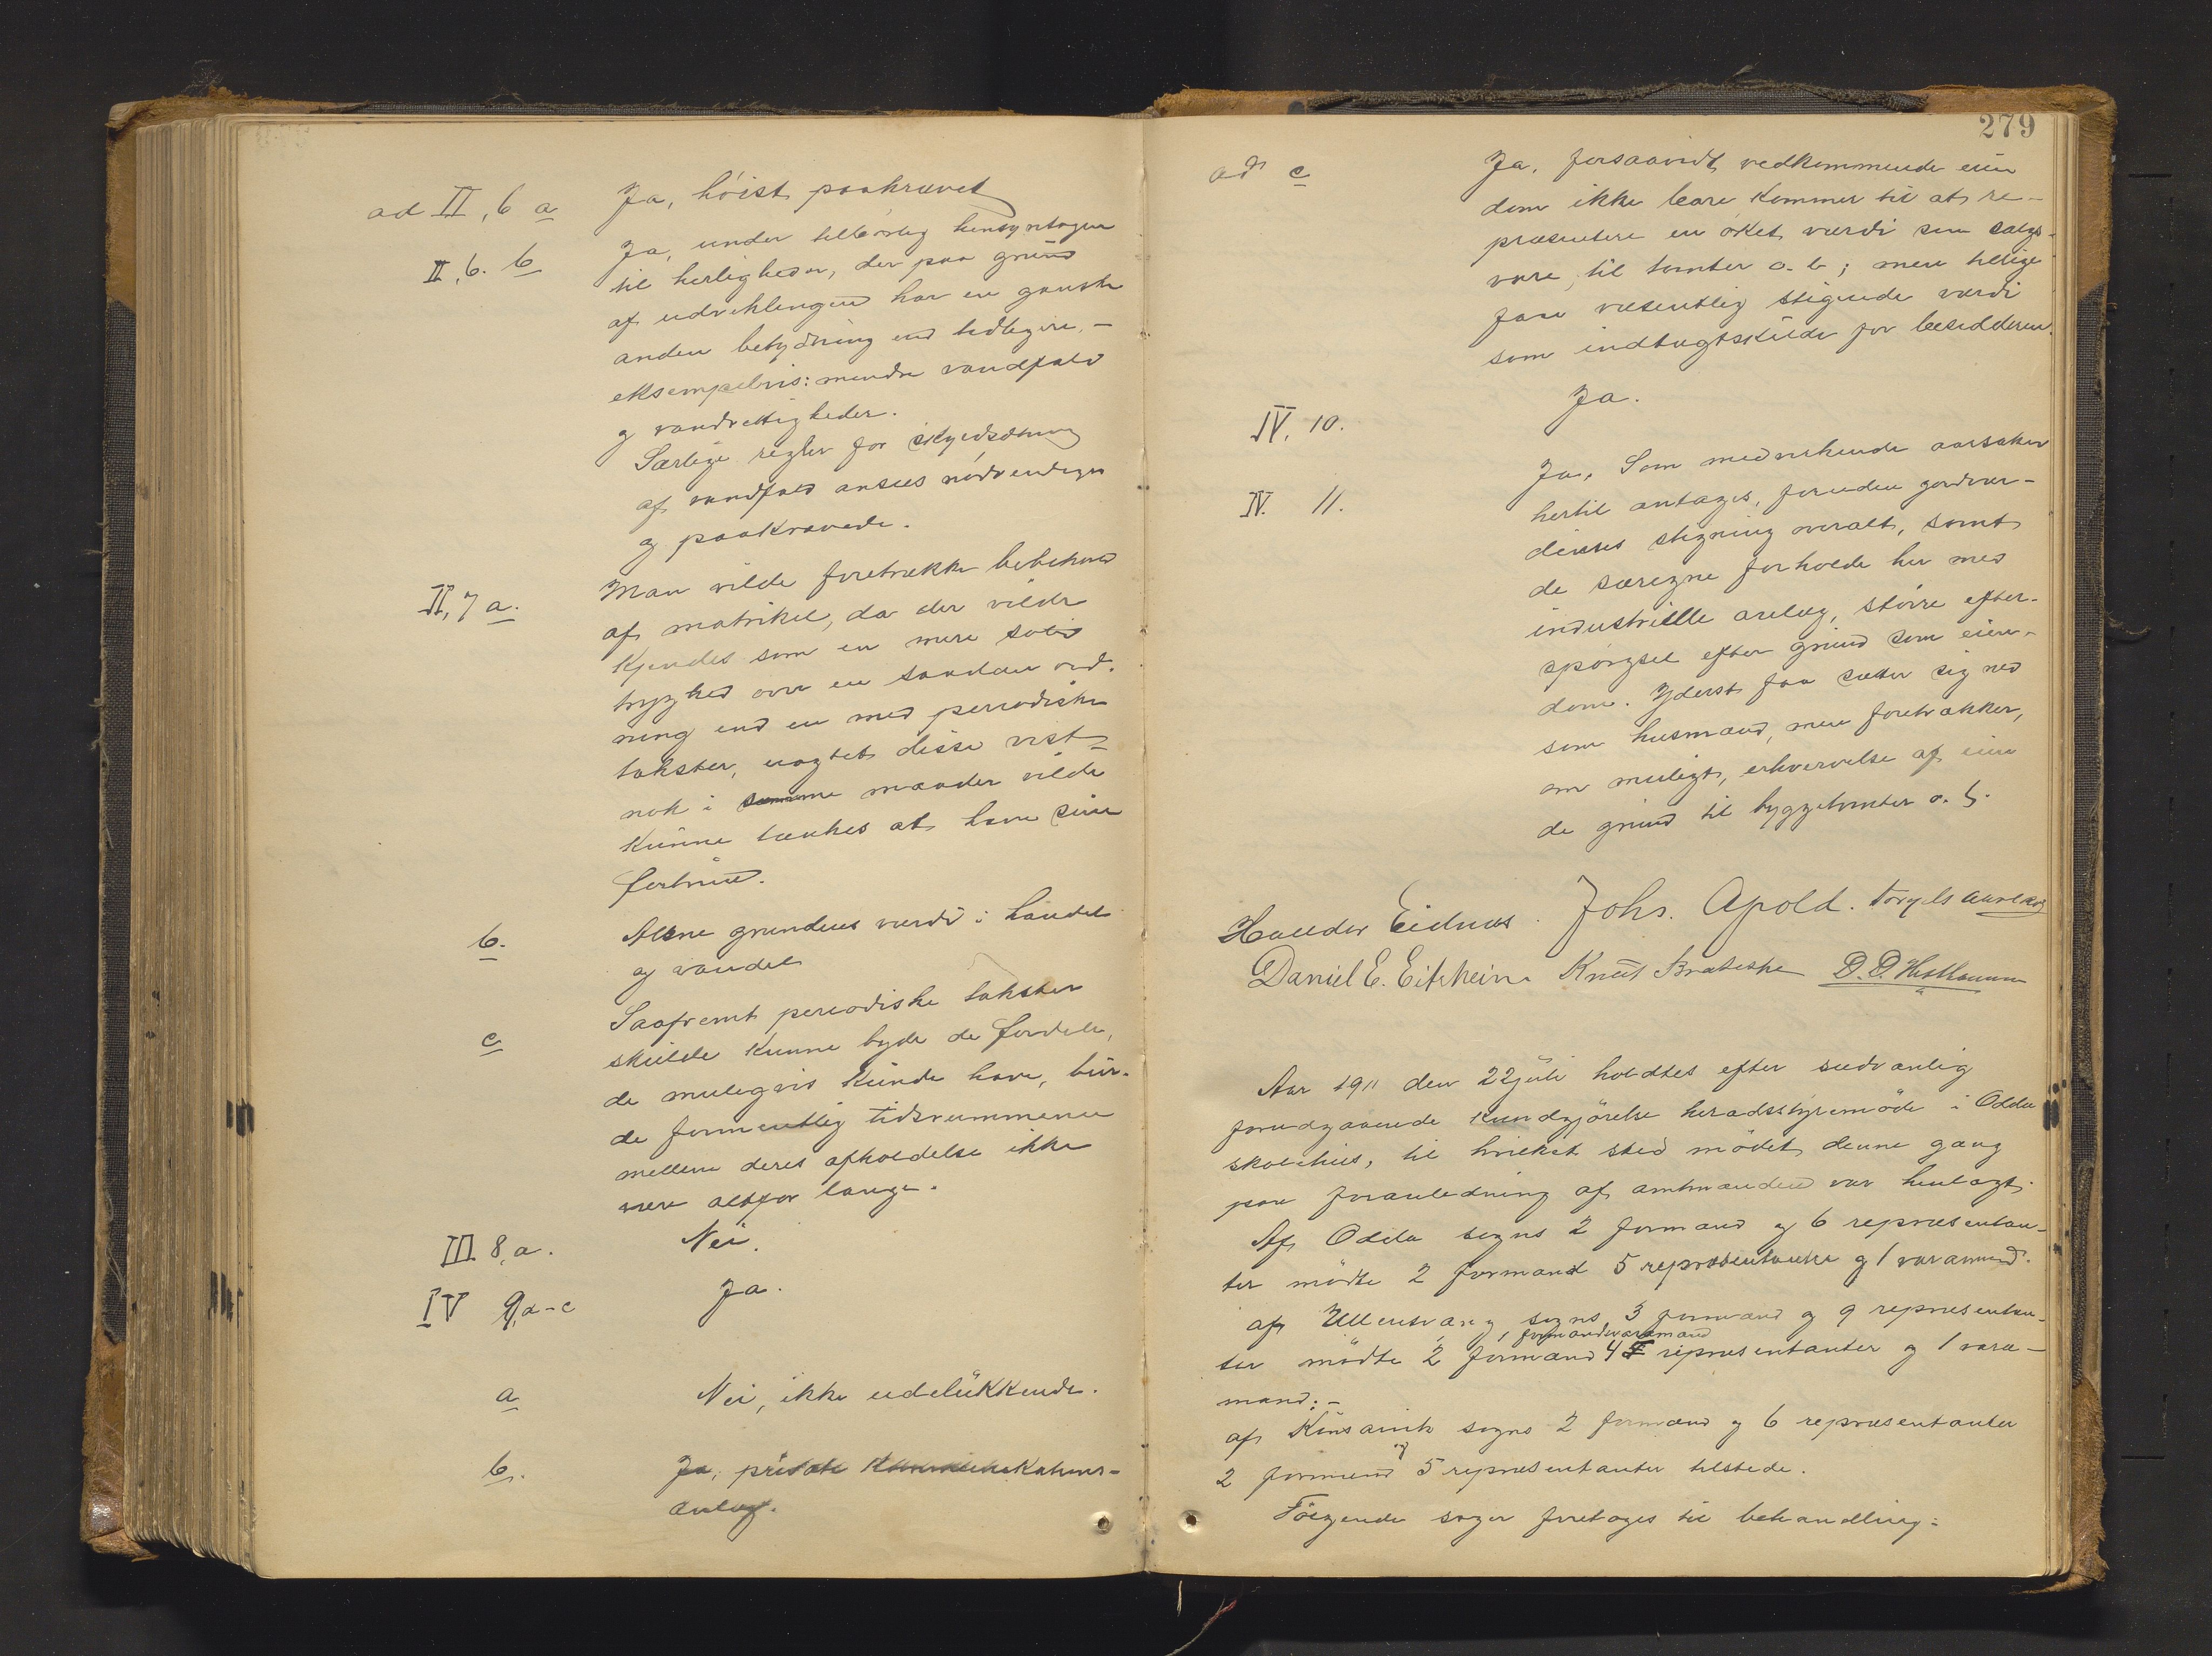 ad II, 6 a Ja, høist paakrævet
II, 6. b Ja, under tilbørlig hensyntagen
til herligheder, der paa grund
af udviklingen har en ganske
anden betydning end tidligere, –
eksempelvis: mindre vandfald
og vandrettigheder.
Særlige regler for skyldsætning
af vandfald ansees nødvendigen
og paakrævede.
II, 7 a. Man vilde foretrække bibehold
af matrikel, da der vilde
kjendes som en mere solid
tryghed over en saadan ord-
ning end en med periodiske
takster, uagtet disse vist-
nok i somme maader vilde
kunne tænkes at have sine
fortrin.
b. Alene grundens værdi i handel
og vandel
c Saafremt periodiske takster
skulde kunne byde de fordele,
de muligvis kunde have, bur-
de formentlig tidsrummene
mellem deres afholdelse ikke
være altfor lange.
III. 8, a. Nei.
IV 9, a-c Ja.
a Nei, ikke udelukkende.
b. Ja, private
anlæg.
279
ad c Ja, forsaavidt vedkommende eien
dom ikke bare kommer til at re-
præsentere en øket værdi som salgs-
vare, til tomter o. l.; men tillige
faar væsentlig stigende værdi
som indtægtskilde for besidderen.
IV, 10. Ja.
IV. 11. Ja. Som medvirkende aarsaker
hertil antages, foruden jordvær-
diens stigning overalt, samt
de særegne forholde her med
industrielle anlæg, større efter-
spørgsel efter grund som eien-
dom. Yderst faa sætter sig ned
som husmænd, men foretrækker,
om muligt, erhvervelse af eien
de grund til byggetomter o. l.
Halldor Eidnes. Johs. Apold. Torgils
Daniel E. Eitrheim Knut Bratespe D. D.
Aar 1911 den 22 juli holdtes efter sedvanlig
forudgaaende kundgjørelse heradsstyremøde i Odda
skolehus, til hvilket sted mødet denne gang
paa foranledning af amtmanden var henlagt.
Af Odda sogns 2 formænd og 6 repræsentan-
ter mødte 2 formænd 5 repræsentanter og 1 varamand.
af Ullensvang sogns 3 formænd og 9 repræsentan-
1 formandsvaramand
ter mødte 2 formænd 4 repræsentanter og 1 vara-
mand; –
af Kinsarvik sogns 2 formænd og 6 repræsentanter
2 formænd og 5 repræsentanter tilstede.
Følgende sager foretoges til behandling: